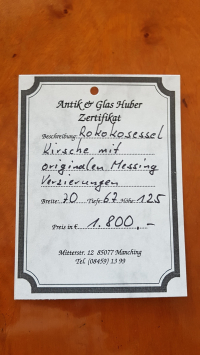 Antik & Glas Huber
Zertifikat
Beschreibung: Rokokosessel
Kirsche mit
originalen Messing
Versierungen
Breite: 70 Tiefe: 67 Höhe: 125
Preis in € 1.800,-
Mitterstr. 12 85077 Manching
Tel. (08459) 13 99